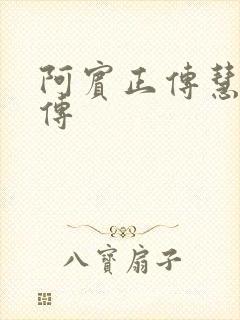 阿賓正傳慧
傳
八寶扇子